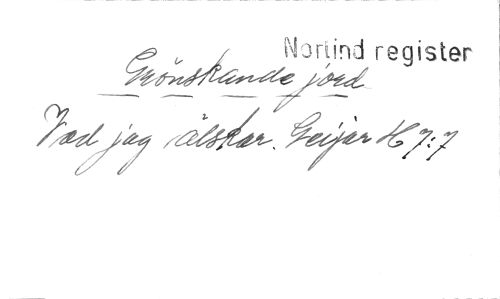 Nortind register
Grönskande jord
Vad jag älskar. Geijer H 7:7